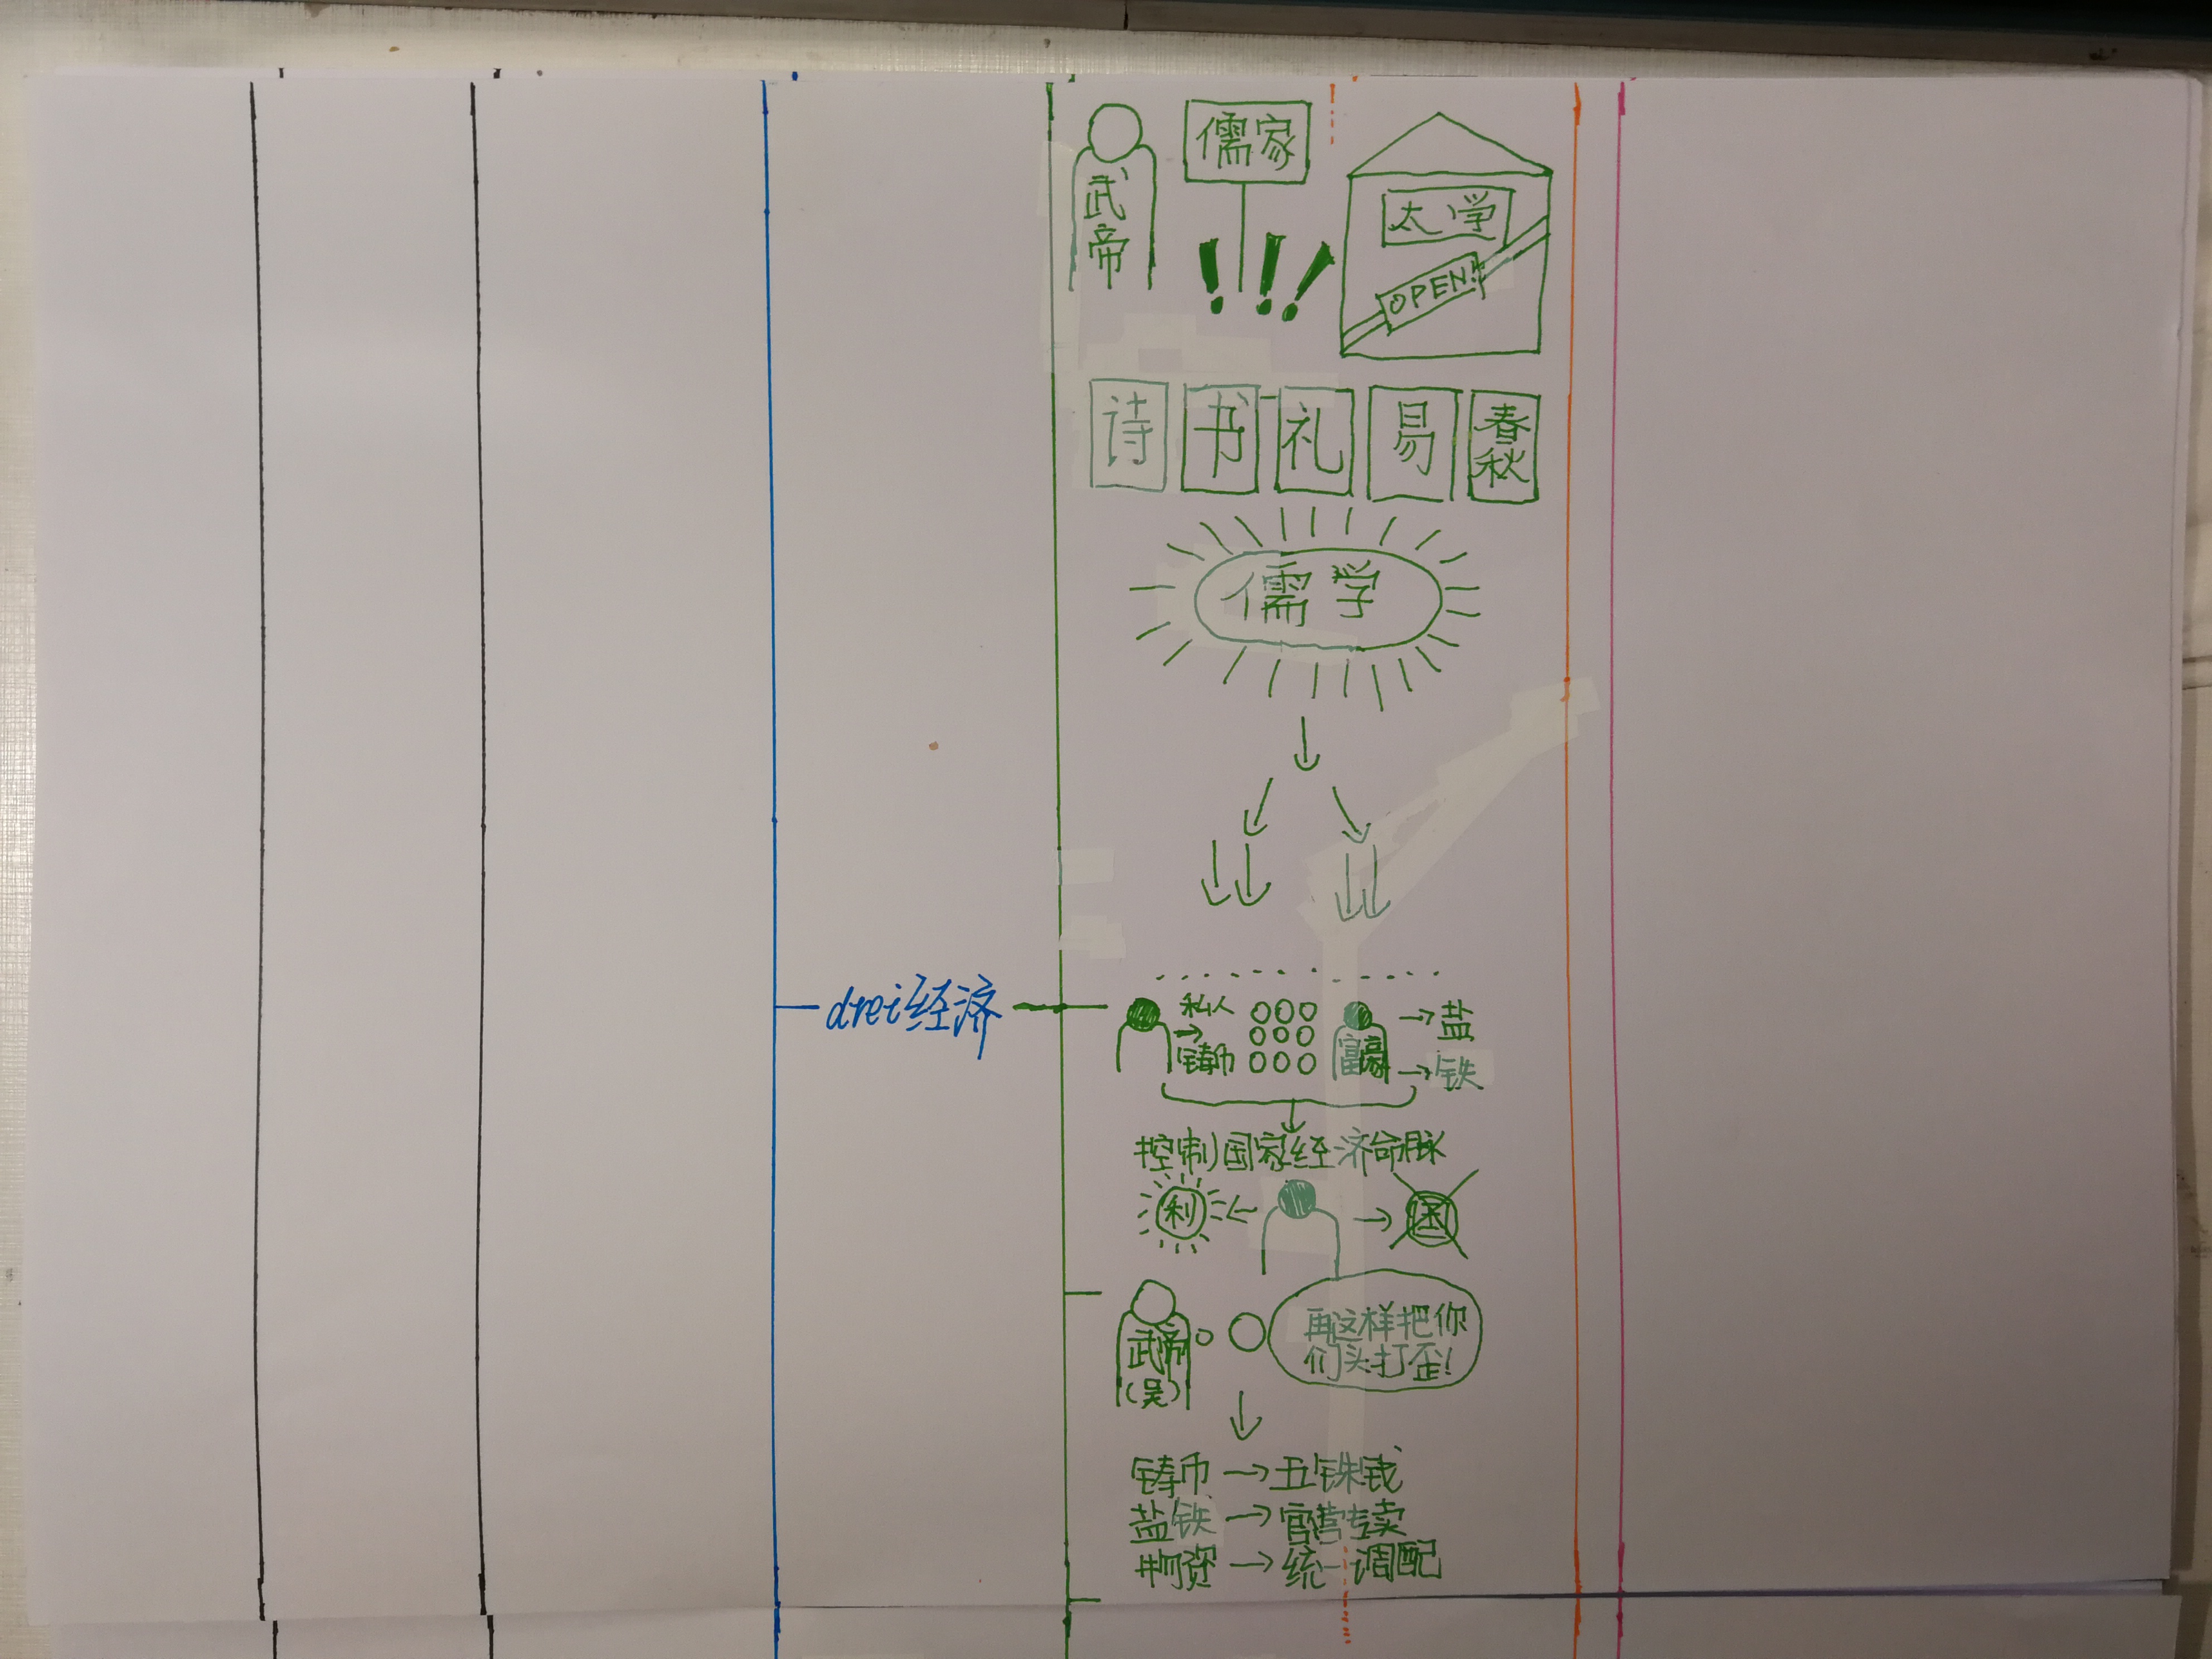 武帝
儒家
太学
OPEN!
诗 书 礼 易 春秋
儒学
drei经济
私人
铸币
富豪
盐
铁
控制国家经济命脉
利
国
武帝
(吴)
再这样把你
们头打歪!
铸币→五铢钱
盐铁→官营专卖
物资→统一调配